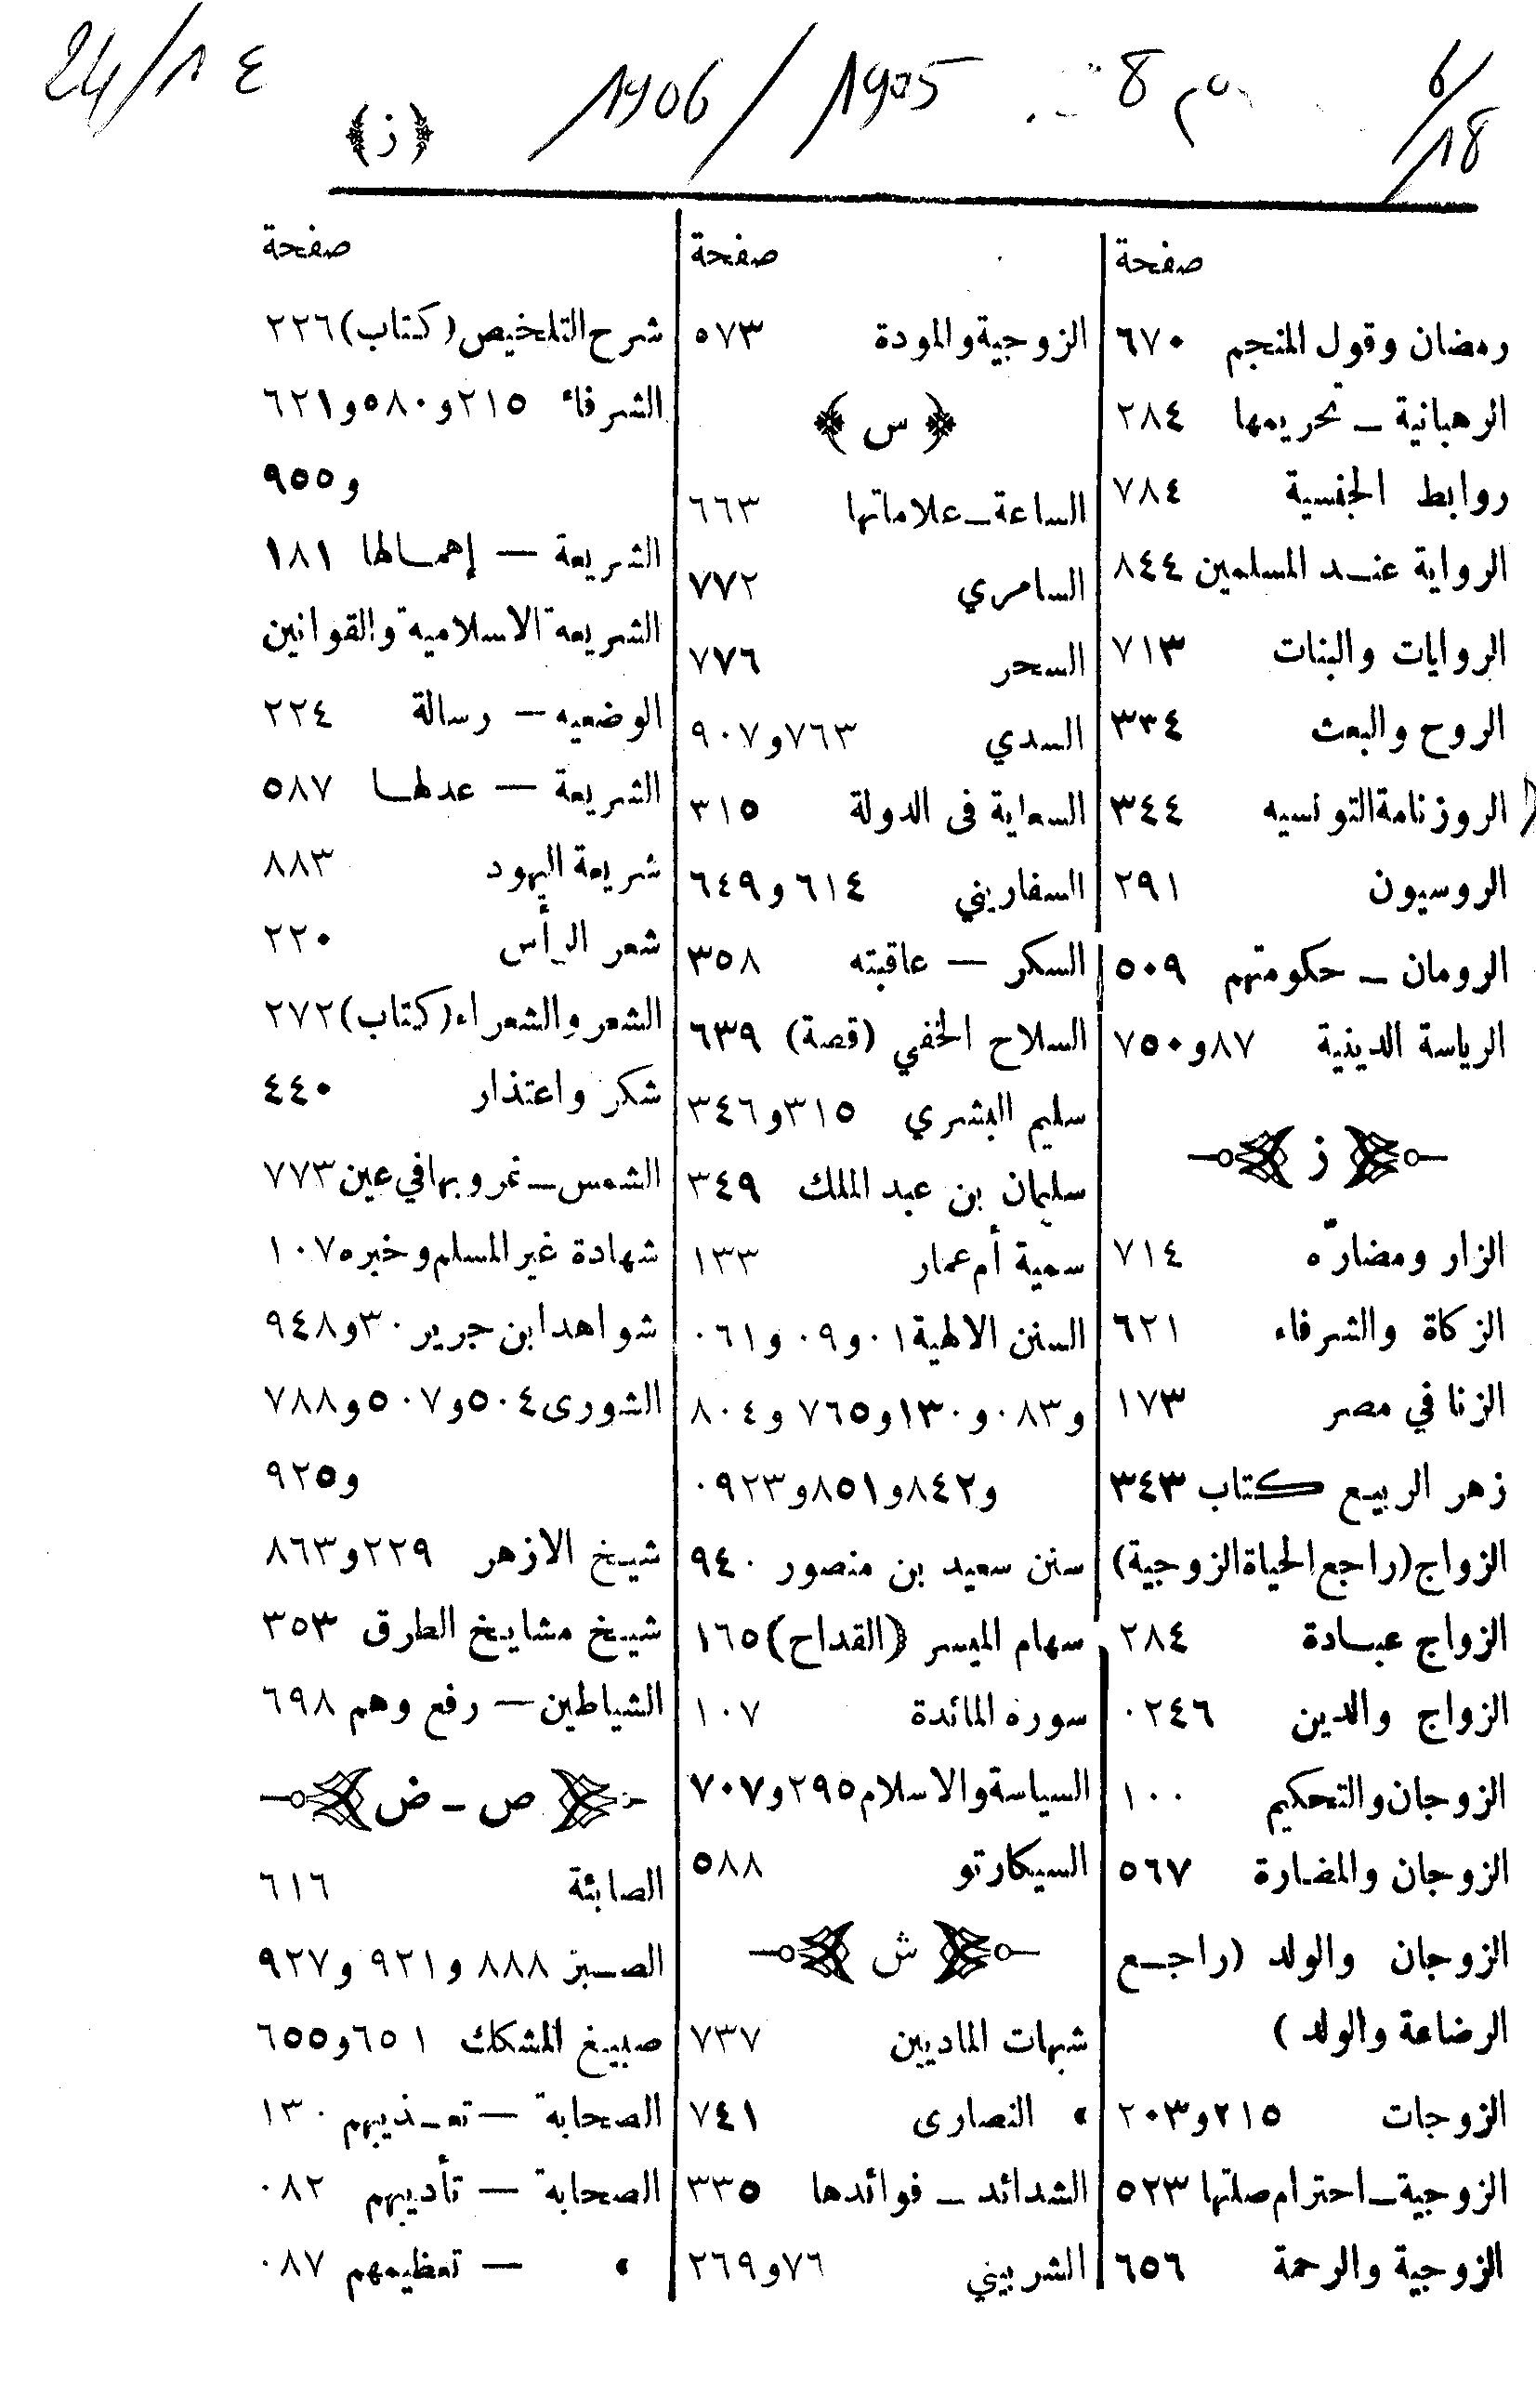 6/18 8 1905/1906 24/1٤
﴿ز﴾
صفحة
رمضان وقول المنجم ٦٧٠
الرهبانية ـ تحريمها ٢٨٤
روابط الجنسية ٧٨٤
الرواية عنـد المسلمين ٨٤٤
الروايات والبنات ٧١٣
الروح والبعث ٣٣٤
الروزنامة التونسيه ٣٤٤
الروسيون ٢٩١
الرومان ـ حكومتهم ٥٠٩
الرياسة الدينية ٨٧ و٧٥٠
﴿ ز ﴾
الزار ومضارّه ٧١٤
الزكاة والشرفاء ٦٢١
الزنا في مصر ١٧٣
زهر الربيـع كتاب ٣٤٣
الزواج (راجع الحياة الزوجية)
الزواج عبـادة ٢٨٤
الزواج والدين ٠٢٤٦
الزوجان والتحكيم ١٠٠
الزوجان والمضارة ٥٦٧
الزوجان والولد (راجـع
الرضاعة والولد )
الزوجات ٢١٥ و٢٠٣
الزوجية ـ احترام صلتها ٥٢٣
الزوجية والرحمة ٦٥٦
صفحة
الزوجية والمودة ٥٧٣
﴿ س ﴾
الساعة ـ علاماتها ٦٦٣
السامري ٧٧٢
السحر ٧٧٦
السدي ٧٦٣ و٩٠٧
السعاية فى الدولة ٣١٥
السفاريني ٦١٤ و٦٤٩
السكر — عاقبته ٣٥٨
السلاح الخفي (قصة) ٦٣٩
سليم البشري ٣١٥ و٣٤٦
سليمان بن عبد الملك ٣٤٩
سمية أم عمار ١٣٣
السنن الالهية ٠١ و٠٩ و٠٦١
و٠٨٣ و١٣٠ و٧٦٥ و٨٠٤
و٨٤٢ و٨٥١ و٠٩٢٣
سنن سعيد بن منصور ٩٤٠
سهام الميسر (القداح) ١٦٥
سوره المائدة ١٠٧
السياسة والاسلام ٢٩٥ و٧٠٧
السيكارتو ٥٨٨
﴿ ش ﴾
شبهات الماديين ٧٣٧
» النصارى ٧٤١
الشدائد ـ فوائدها ٣٣٥
الشربيني ٧٦ و٢٦٩
صفحة
شرح التلخيص (كتاب) ٢٢٦
الشرفاء ٢١٥ و٥٨٠ و٦٢١
و٩٥٥
الشريعة — إهمـالها ١٨١
الشريعة الاسلامية والقوانين
الوضعيه — رسالة ٢٢٤
الشريعة — عدلهـا ٥٨٧
شريعة اليهود ٨٨٣
شعر الرأس ٢٢٠
الشعر والشعراء (كتاب) ٢٧٢
شكر واعتذار ٤٤٠
الشمس ـ غروبها في عين ٧٧٣
شهادة غير المسلم وخبره ١٠٧
شواهد ابن جرير ٣٠ و٩٤٨
الشورى ٥٠٤ و٥٠٧ و٧٨٨
و٩٢٥
شيـخ الازهر ٢٢٩ و٨٦٣
شيـخ مشايـخ الطرق ٣٥٣
الشياطين — رفع وهم ٦٩٨
﴿ ص ـ ض ﴾
الصابئة ٦١٦
الصـبر ٨٨٨ و٩٢١ و٩٢٧
صبيـغ المشكك ٦٥١ و٦٥٥
الصحابة — تعـذيبهم ١٣٠
الصحابة — تأديبهم ٠٨٢
» — تعظيمهم ٠٨٧